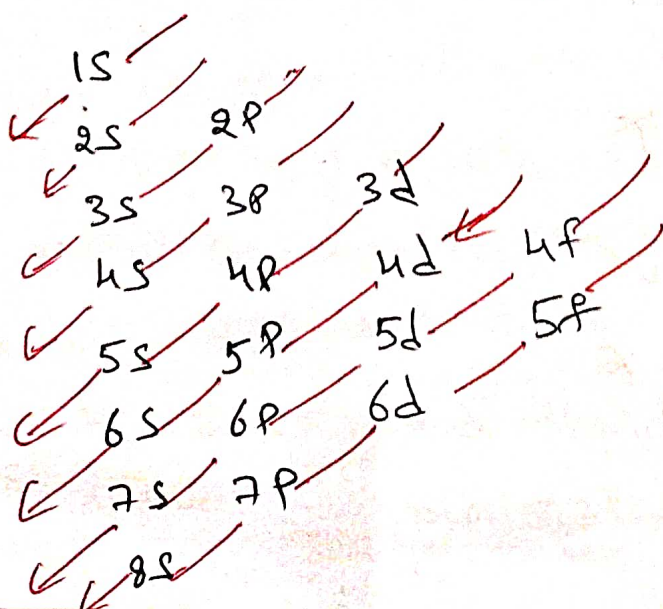 1S
2S 2P
3S 3P 3d
4S 4P 4d 4f
5S 5P 5d 5f
6S 6P 6d
7S 7P
8S